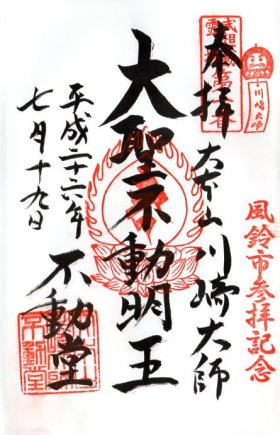 奉拝
大本山川崎大師
川崎大師
風鈴市参拝記念
大聖不動明王
不動堂
平成二十六年
七月十九日